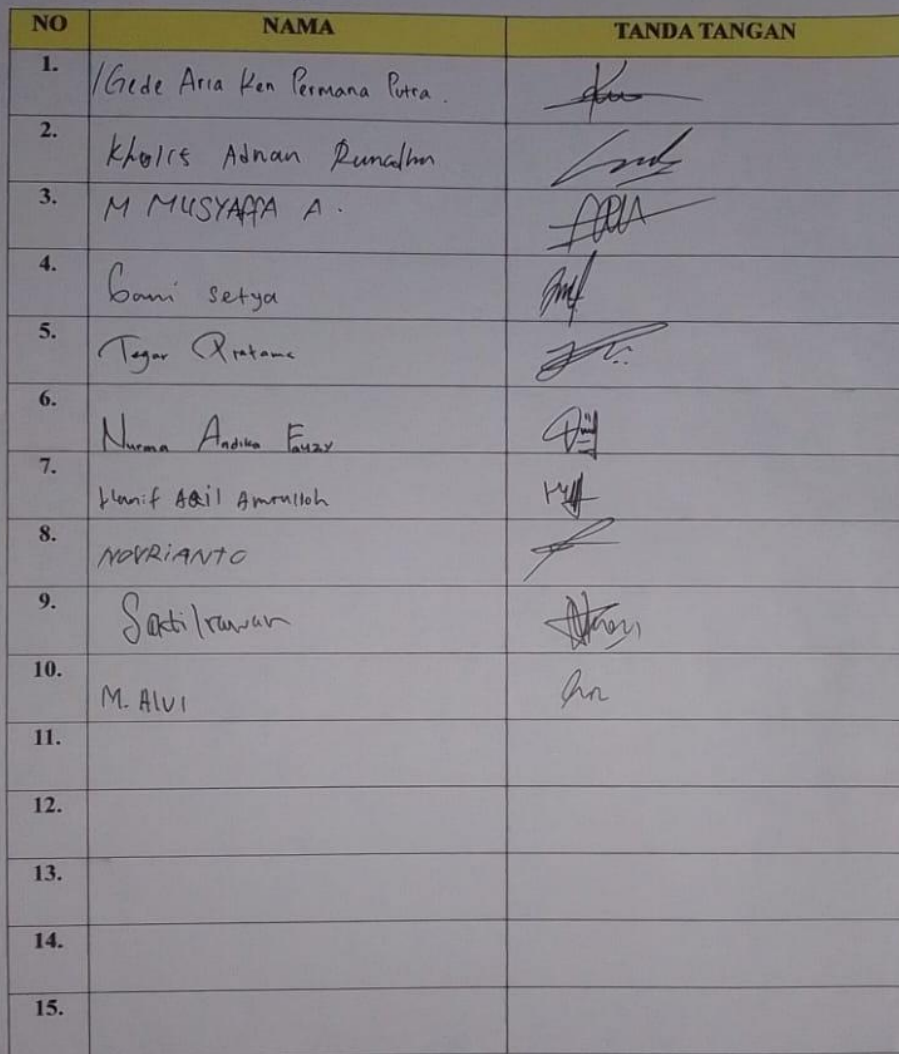 NO NAMA TANDA TANGAN
1. I Gede Aria Ken Permana Putra.
2. Kholis Adnan
3. M MUSYAFFA A.
4. setya
5. Tegar Pratama
6. Nurma Andika Fauzy
7. Hanif AQil Amrulloh
8. NOVRiANTO
9. Sakti Irawan
10. M. Alvi
11.
12.
13.
14.
15.